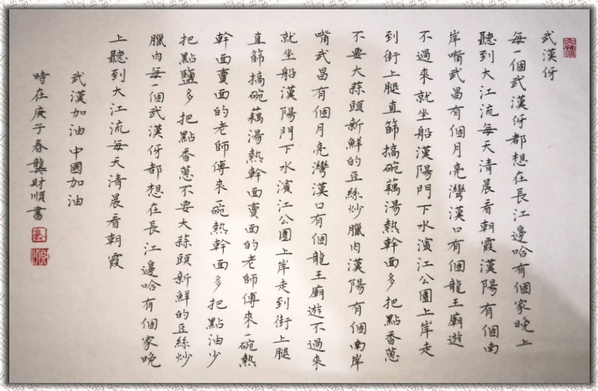 武漢伢
每一個武漢伢都想在長江邊哈有個家晚上
聽到大江流每天清晨看朝霞漢陽有個南
岸嘴武昌有個月亮灣漢口有個龍王廟遊
不過來就坐船漢陽門下水濱江公園上岸走
到街上腿直篩搞碗藕湯熱幹面多把點香蔥
不要大蒜頭新鮮的豆絲炒臘肉漢陽有個南岸
嘴武昌有個月亮灣漢口有個龍王廟遊不過來
就坐船漢陽門下水濱江公園上岸走到街上腿
直篩搞碗藕湯熱幹面賣面的老師傅來一碗熱
幹面賣面的老師傅來一碗熱幹面多把點油少
把點鹽多把點香蔥不要大蒜頭新鮮的豆絲炒
臘肉每一個武漢伢都想在長江邊哈有個家晚
上聽到大江流每天清晨看朝霞
武漢加油 中國加油
時在庚子春龔財順書